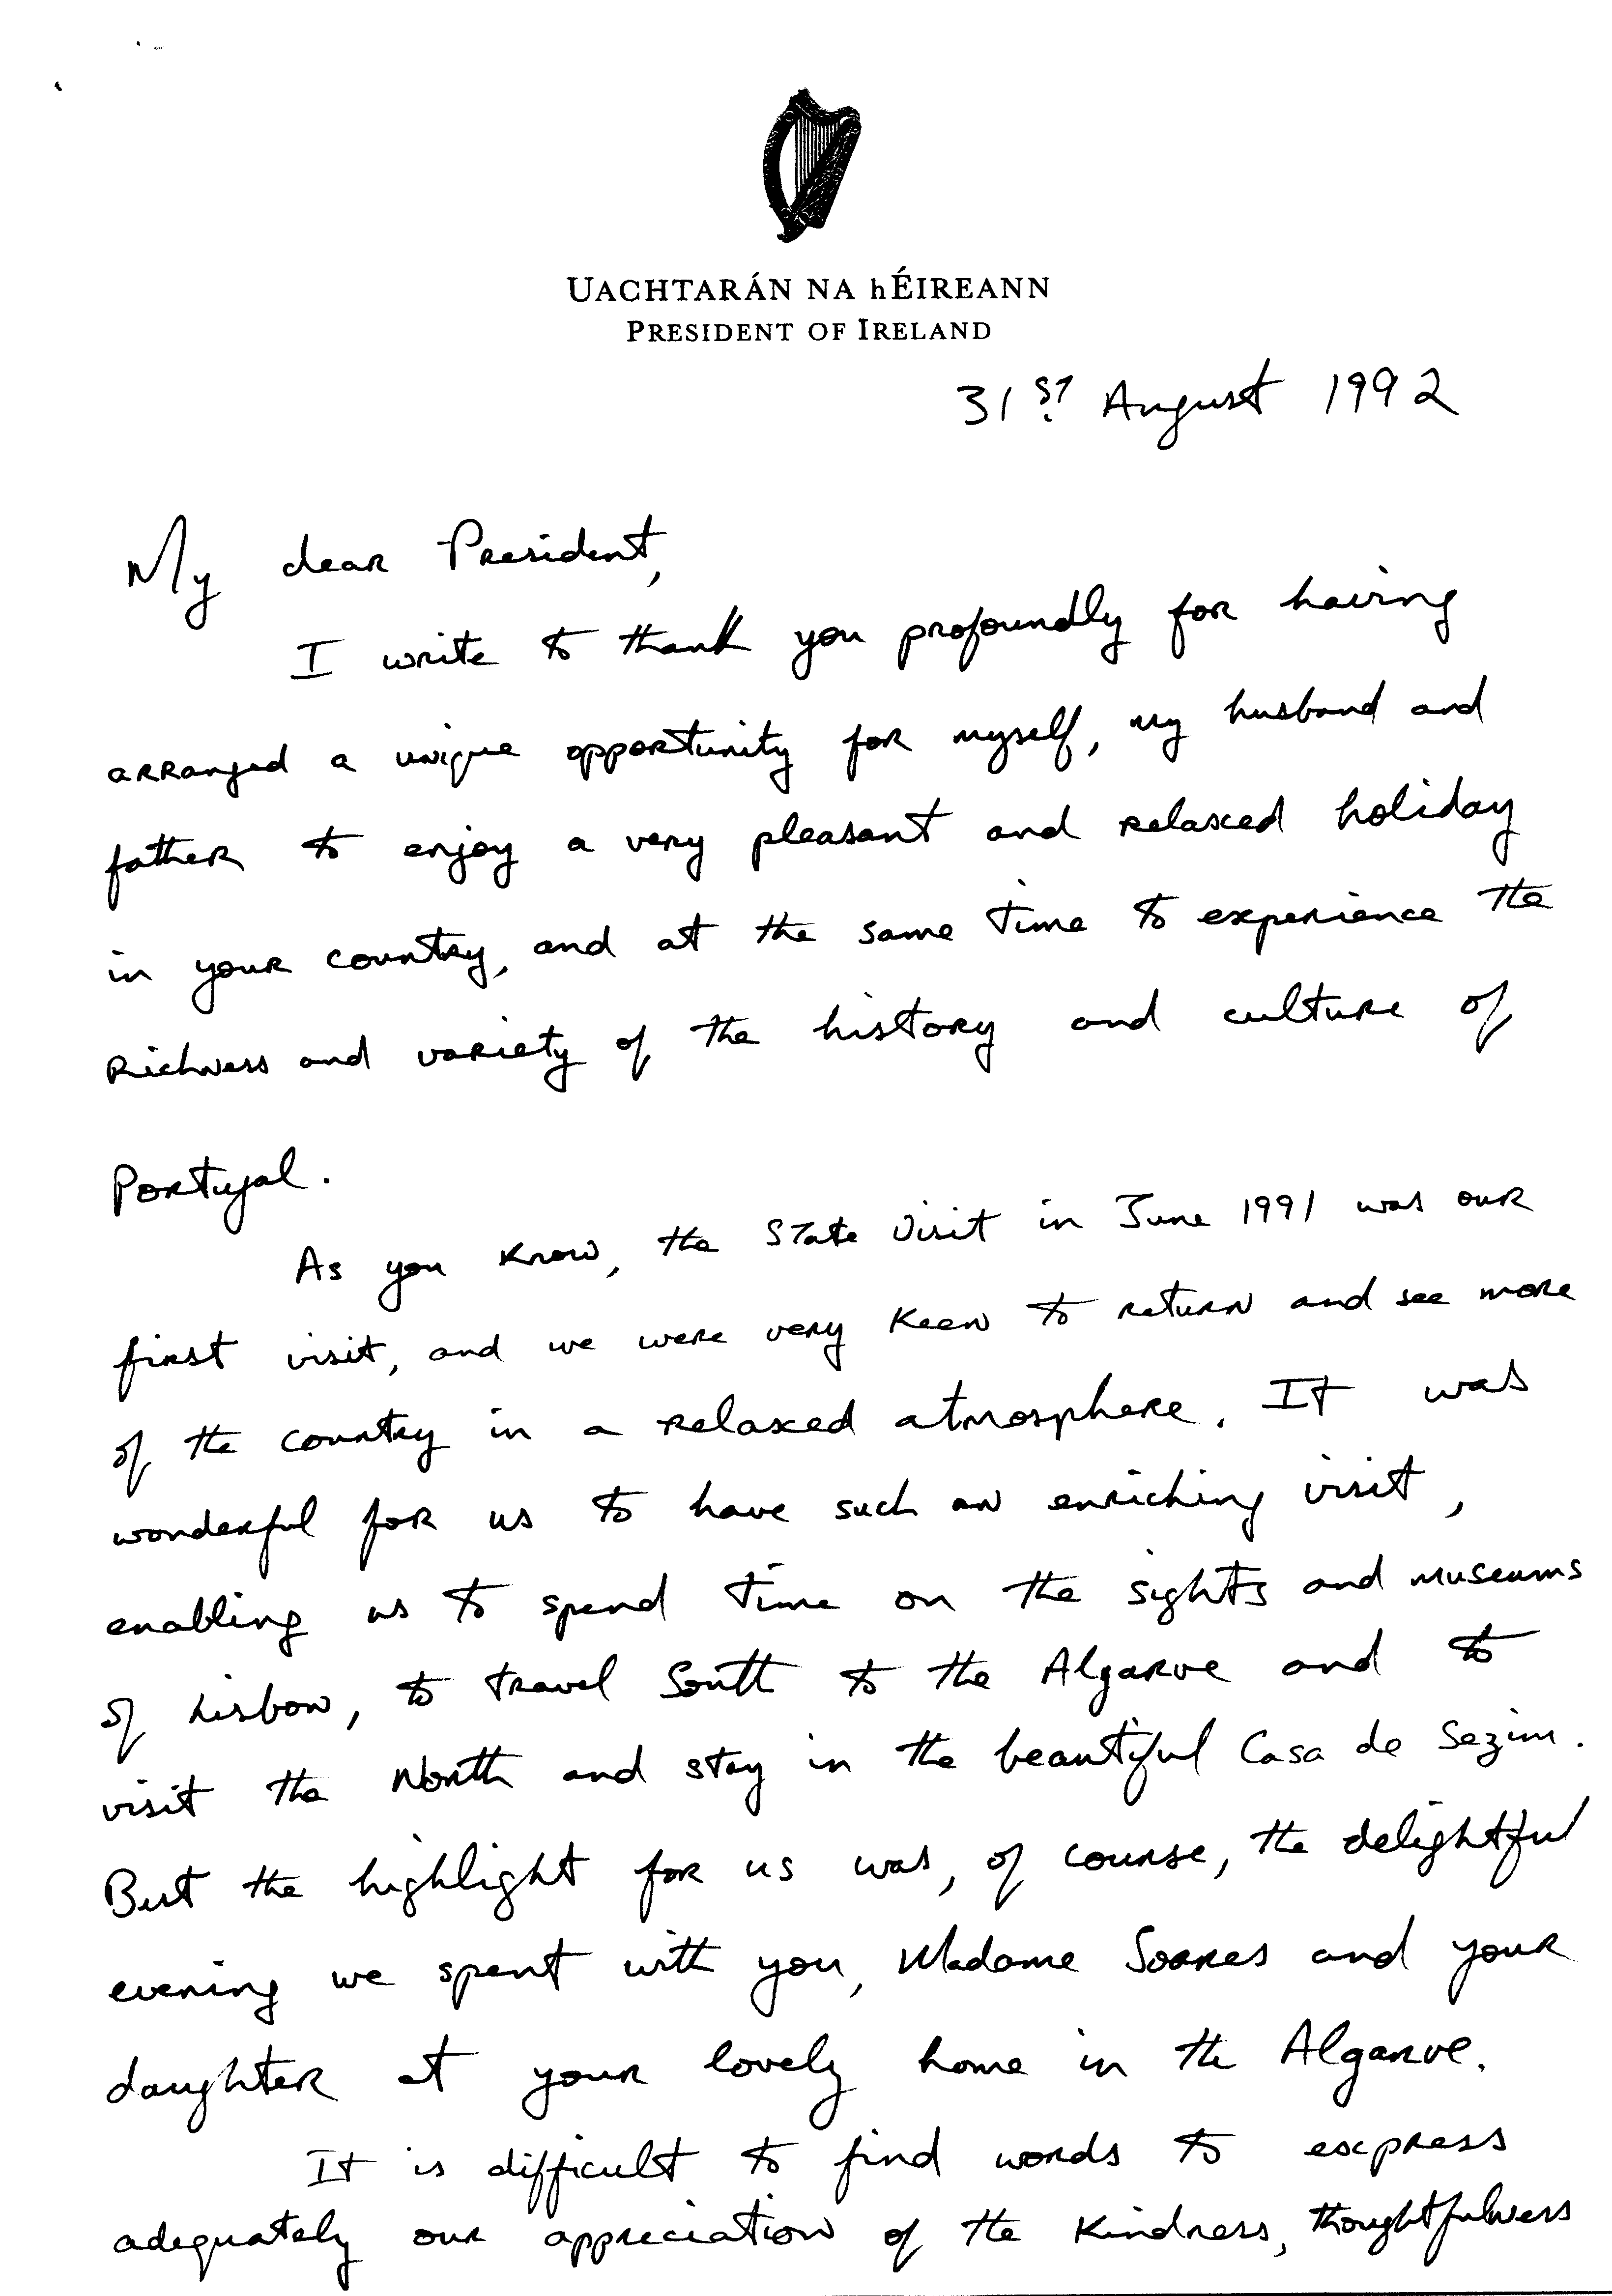 UACHTARÁN NA hÉIREANN
PRESIDENT OF IRELAND
31st August 1992
My dear President,
I write to thank you profoundly for having
arranged a unique opportunity for myself, my husband and
father to enjoy a very pleasant and relaxed holiday
in your country, and at the same time to experience the
richness and variety of the history and culture of
Portugal.
As you know, the State Visit in June 1991 was our
first visit, and we were very keen to return and see more
of the country in a relaxed atmosphere. It was
wonderful for us to have such an enriching visit,
enabling us to spend time on the sights and museums
of Lisbon, to travel South to the Algarve and to
visit the North and stay in the beautiful Casa de Sezim.
But the highlight for us was, of course, the delightful
evening we spent with you, Madame Soares and your
daughter at your lovely home in the Algarve.
It is difficult to find words to express
adequately our appreciation of the kindness, thoughtfulness